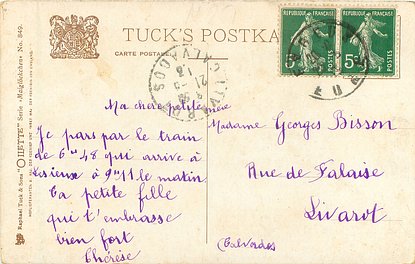 TUCK'S POSTKA
CARTE POSTA
REPUBLIQUE FRANÇAISE
REPUBLIQUE FRANÇAISE
5
5
CALVADOS
LIVAROT
Ma chère petite mère
Je pars par le train
de 6h48 qui arrive à
Lisieux à 9h11 le matin
Ta petite fille
qui t'embrasse
bien fort
Thérèse
Madame Georges Bisson
Rue de Falaise
Livarot
Calvados
Raphael Tuck & Sons' "OILETTE" Serie „Mögödchen" No. 849.